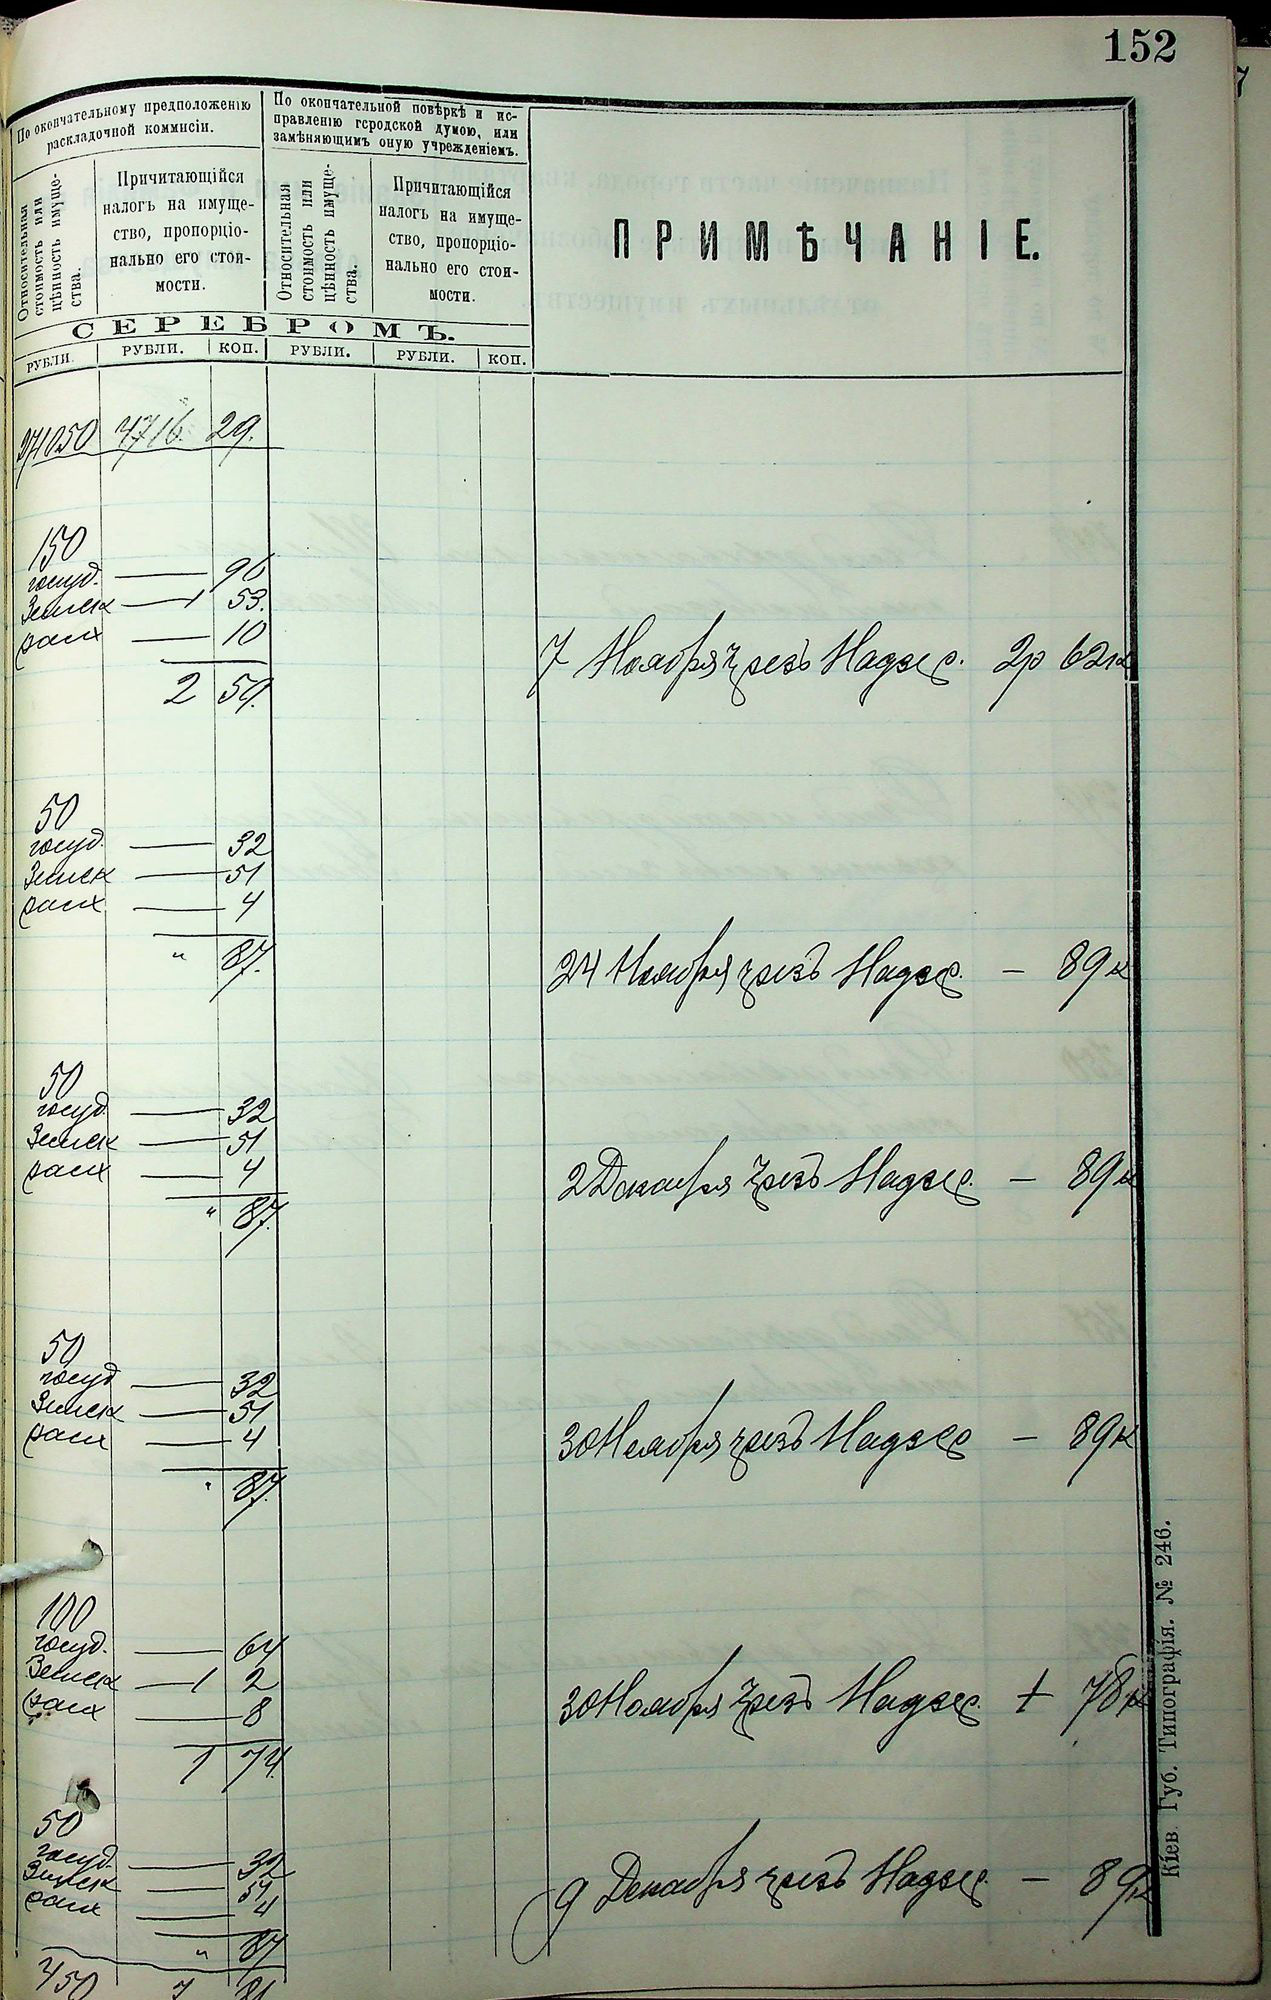 152
По окончательному предположенію
раскладочной коммисіи.
По окончательной повѣркѣ и ис-
правленію городской думою, или
замѣняющимъ оную учрежденіемъ.
Относительная
стоимость или
цѣнность имуще-
ства.
Причитающійся
налогъ на имуще-
ство, пропорціо-
нально его стои-
мости.
Относительная
стоимость или
цѣнность имуще-
ства.
Причитающійся
налогъ на имуще-
ство, пропорціо-
нально его стои-
мости.
ПРИМѢЧАНІЕ.
СЕРЕБРОМЪ.
РУБЛИ. РУБЛИ. КОП. РУБЛИ. РУБЛИ. КОП.
271050 4716. 29.
150
госуд. — 96
Земск — 1 53.
расх — 10
2 59.
7 Ноября чрезъ Надзер. 2р 62к
50
госуд. — 32
Земск — 51
расх — 4
" 87.
24 Ноября чрезъ Надзер. — 89к
50
госуд — 32
Земск — 51
расх — 4
" 87.
2 Декабря чрезъ Надзер. — 89к
50
госуд — 32
Земск — 51
расх — 4
" 87.
30 Ноября чрезъ Надзер — 89к
100
госуд. — 64
Земск — 1 2
расх — 8
1 74.
30 Ноября чрезъ Надзер. 1 78к
50
госуд. — 32
Земск — 51
расх — 4
" 87
9 Декабря чрезъ Надзер. — 89к
450 7 81
Кіев. Губ. Типографія. № 246.